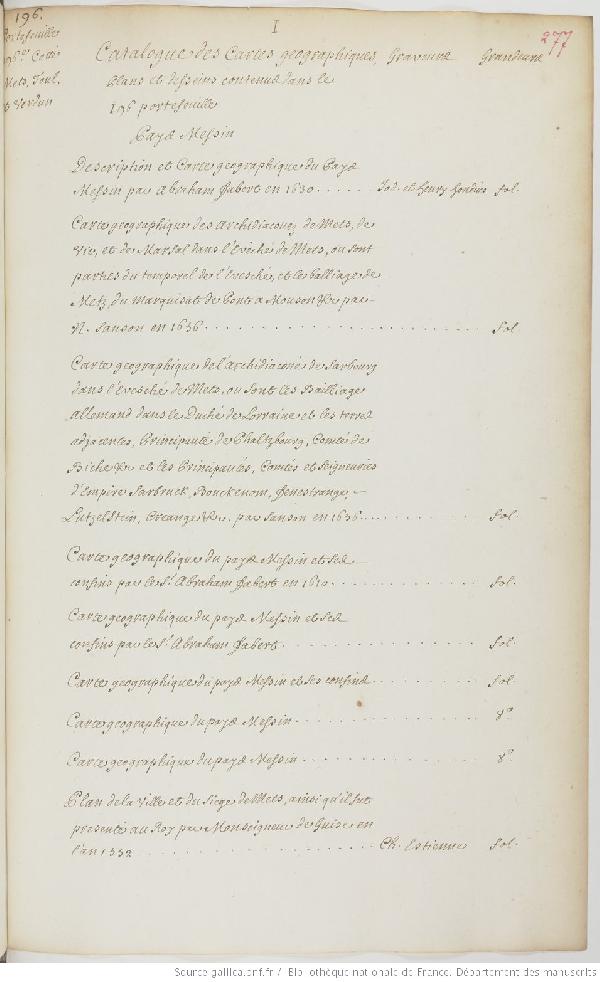 196.
I
277
Portefeuille
Mets, Toul,
et Verdun
Catalogue des Cartes geographiques, Graveurs Grandeurs
plans et desseins contenus dans le
196 portefeuille
Pays Messin
Description et Carte geographique du Pays
Messin par Abraham Fabert en 1630 . . . . . . Jod. et Henry Hondius fol.
Carte geographique des Archidiaconez de Mets, de
Vic, et de Marsal dans l'Evêché de Mets, ou sont
parties du temporel de l'Evesché, et le balliage de
Metz, du Marquisat de Pont a Mousson &c par
N. Sanson en 1656 . . . . . . . . . . . . fol
Carte geographique de l'Archidiaconé de Sarbourg
dans l'Evesché de Mets, ou sont les Bailliage
allemand dans le Duché de Lorraine et les terres
adjacentes, Principauté de Phaltzbourg, Comté de
Biche &c et les Principautés, Comtés et Seigneuries
d'Empire Sarbruck, Bouckenom, Fenestrange,
Lutzelstein, Creange &c. par Sanson en 1656 . . . . . . . fol
Carte geographique du pays Messin et ses
confins par le Sr. Abraham Fabert en 1610 . . . . . . . . fol.
Carte geographique du pays Messin et ses
confins par le Sr. Abraham Fabert . . . . . . . . . . fol.
Carte geographique du pays Messin et ses confins . . . . . . . fol.
Carte geographique du pays Messin . . . . . . . . . . 8º
Carte geographique du pays Messin . . . . . . . . . . 8º
Plan de la ville et du siege de Mets, ainsi qu'il fut
presenté au Roy par Monseigneur de Guise en
l'an 1552 . . . . . . . . . . . . . Ch. Estienne fol.
Source gallica.bnf.fr / Bibliothèque nationale de France. Département des manuscrits